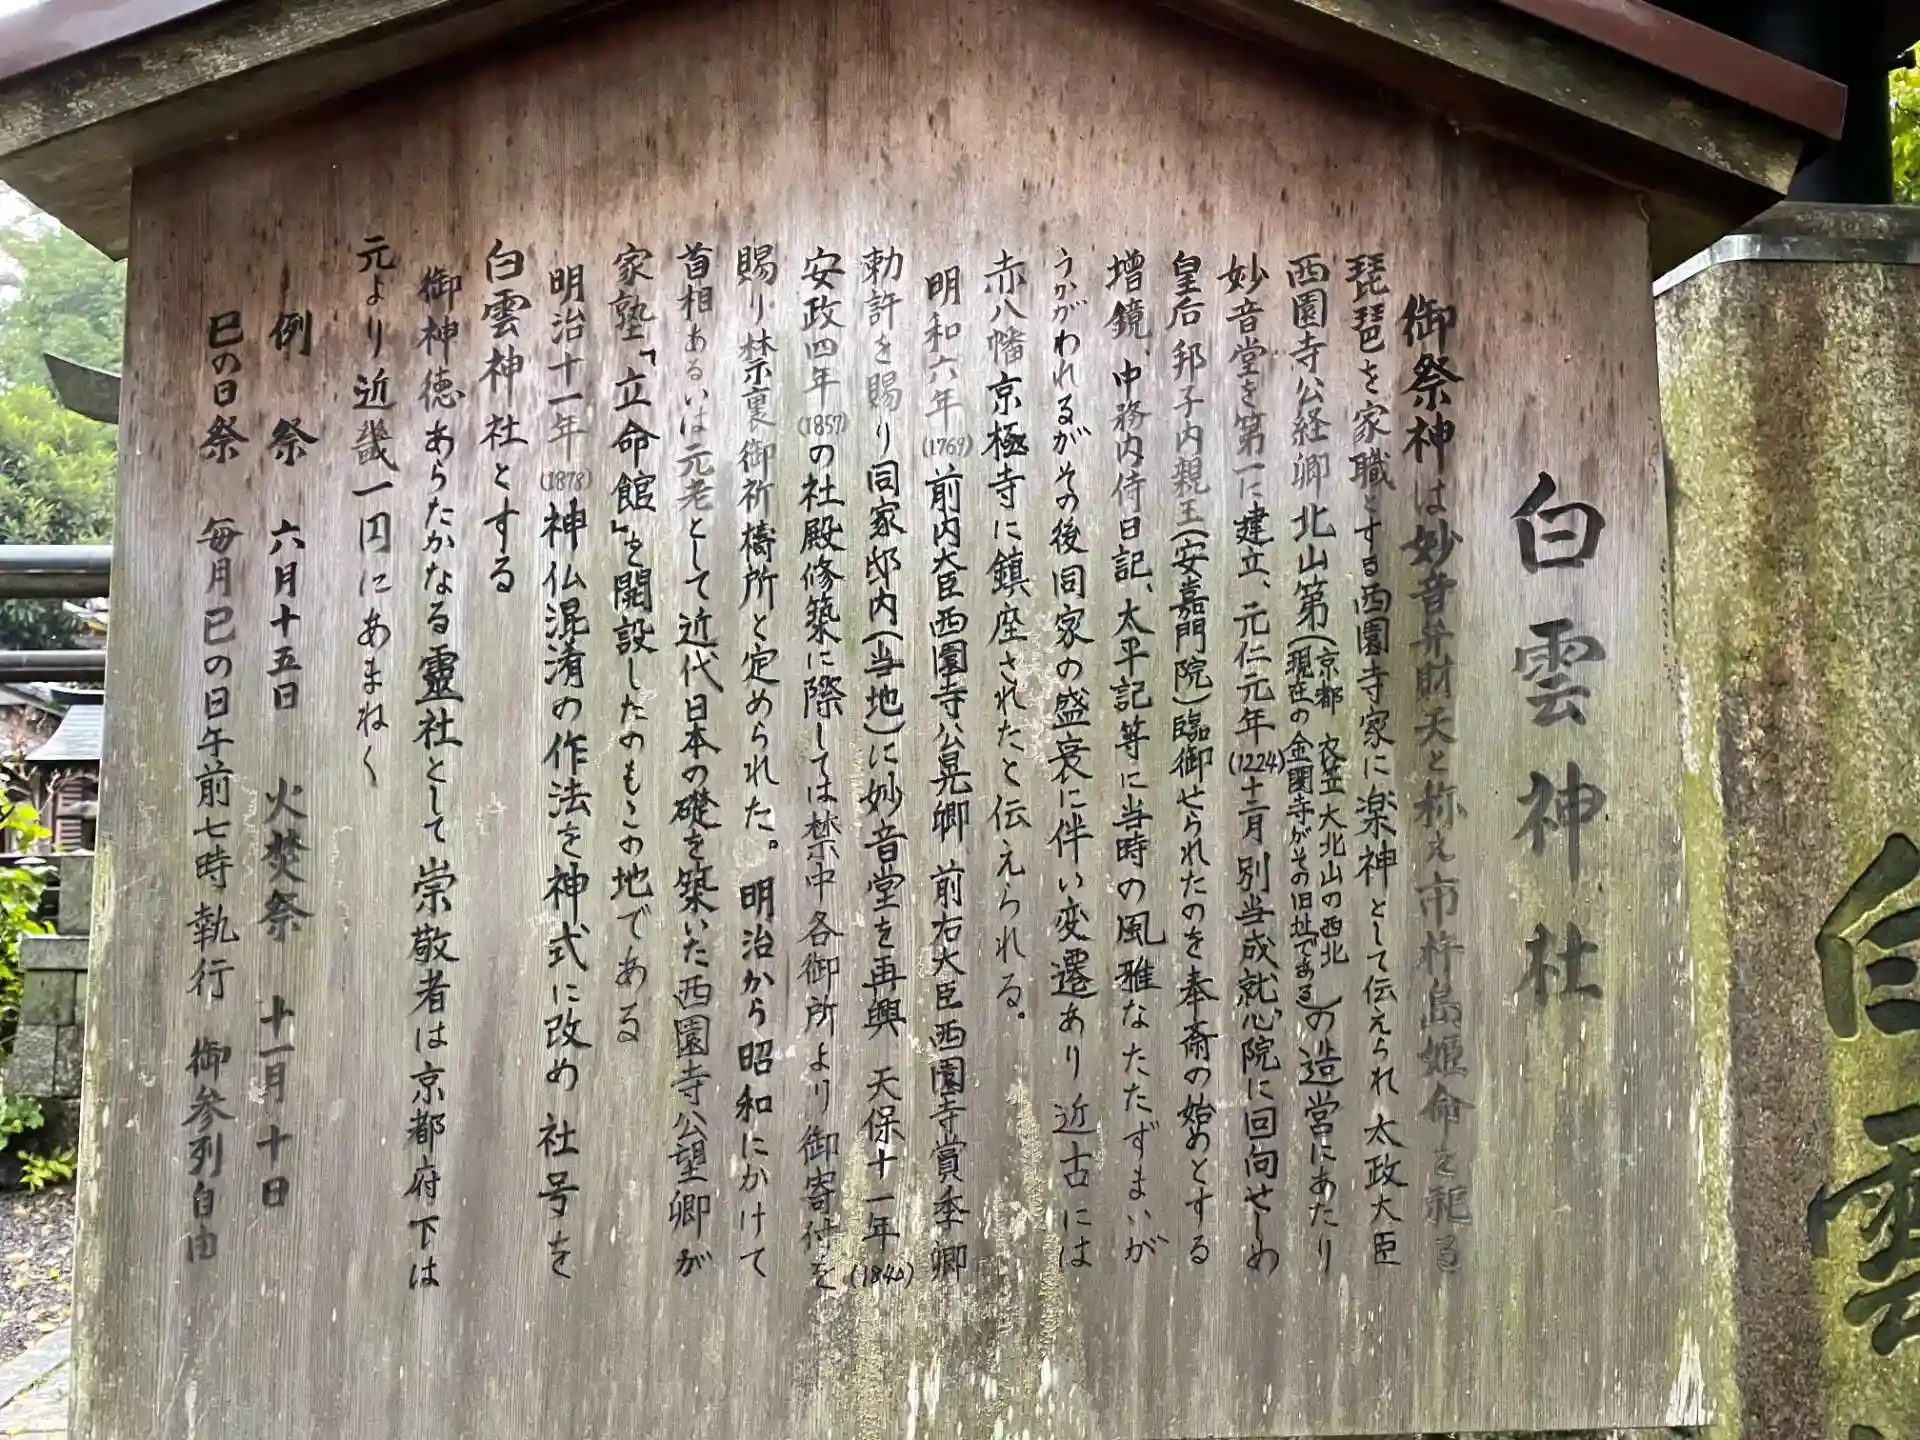 白雲神社
御祭神は妙音弁財天と称え市杵島姫命を祀る
琵琶を家職とする西園寺家に楽神として伝えられ太政大臣
西園寺公経卿北山第(京都 衣笠 大北山の西北
現在の金閣寺がその旧址である)の造営にあたり
妙音堂を第一に建立、元仁元年(1224)十二月別当成就心院に回向せしめ
皇后邦子内親王(安嘉門院)臨御せられたのを奉斎の始めとする
増鏡、中務内侍日記、太平記等に当時の風雅なたたずまいが
うかがわれるがその後同家の盛衰に伴い変遷あり近古には
赤八幡京極寺に鎮座されたと伝えられる。
明和六年(1769)前内大臣西園寺公晃卿 前右大臣西園寺賞季卿
勅許を賜り同家邸内(当地)に妙音堂を再興 天保十一年(1840)
安政四年(1857)の社殿修築に際しては禁中各御所より御寄付を
賜り禁裏御祈禱所と定められた。明治から昭和にかけて
首相あるいは元老として近代日本の礎を築いた西園寺公望卿が
家塾「立命館」を開設したのもこの地である
明治十一年(1878)神仏混淆の作法を神式に改め社号を
白雲神社とする
御神徳あらたかなる靈社として崇敬者は京都府下は
元より近畿一円にあまねく
例祭 六月十五日 火焚祭 十一月十日
巳の日祭 毎月巳の日午前七時執行 御参列自由
白雲